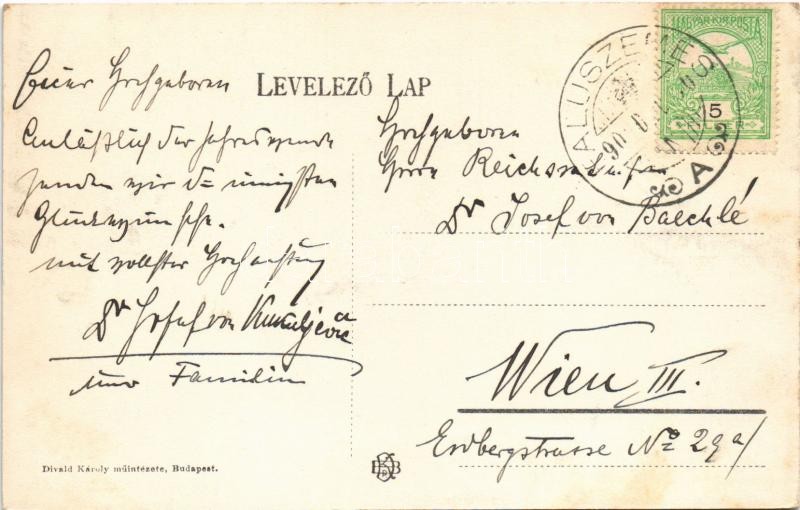 LEVELEZŐ LAP
Euer Hochgeboren
Anläßlich der Jahreswende
senden wir die innigsten
Glückwünsche.
mit vollster Hochachtung
Dr Josef von
und Familie
Hochgeboren
Herrn Reichsrat
Dr Josef von Baechlé
Wien III.
Erdbergstrasse No 29a/
MAGYAR KIR. POSTA
5
Divald Károly műintézete, Budapest.